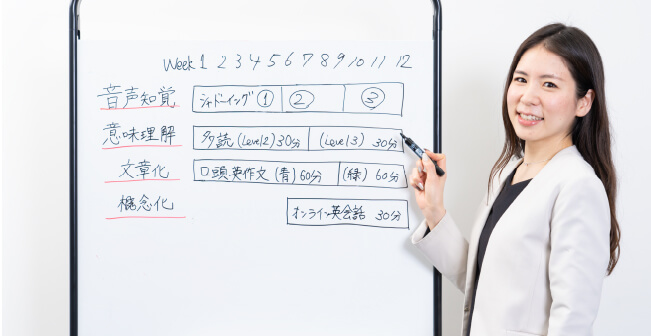 Week 1 2 3 4 5 6 7 8 9 10 11 12
音声知覚 シャドーイング ① ② ③
意味理解 多読 (Level 2) 30分 (Level 3) 30分
文章化 口頭英作文 (青) 60分 (緑) 60分
概念化 オンライン英会話 30分